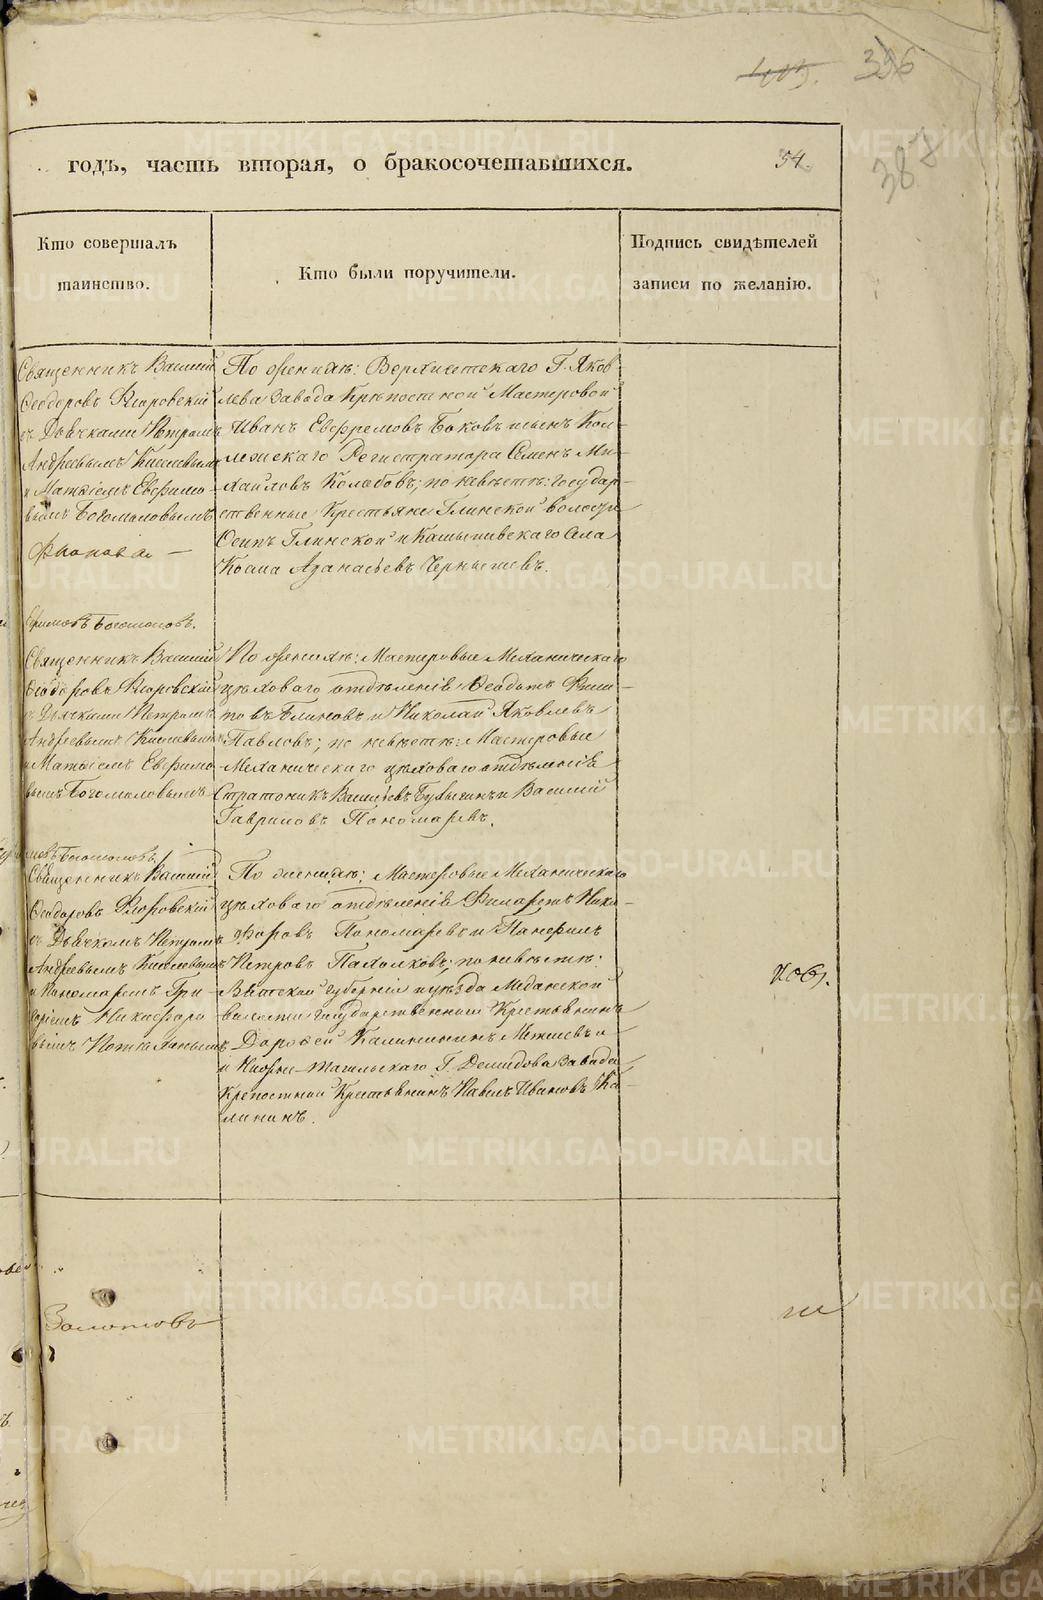 396
годъ, часть вторая, о бракосочетавшихся.
54.
388
Кто совершалъ
таинство.
Кто были поручители.
Подпись свидѣтелей
записи по желанію.
Священникъ Василій
Ѳеодоровъ Флоровскій
съ Дьячками Петромъ
Андреевымъ Киселевымъ
и Матвіемъ Ефимо-
вымъ Богомоловымъ
По женихѣ: Верхисетскаго Г. Яков-
лева Завода Крѣпостной Мастеровой
Иванъ Евфремовъ Боковъ и сынъ Кол-
лежскаго Регистратора Семенъ Ми-
хайловъ Колобовъ; по невѣстѣ: Государ-
ственные Крестьяне Глинской волости
Осипъ Глинской и Камышевскаго Села
Косма Аѳанасьевъ Чернышевъ.
Ефимовъ Богомоловъ.
Священникъ Василій
Ѳеодоровъ Флоровскій
съ Дьячками Петромъ
Андреевымъ Киселевымъ
и Матвіемъ Ефимо-
вымъ Богомоловымъ
По женихѣ: Мастеровые Механическаго
цѣховаго отдѣленія Ѳеодотъ Фили-
повъ Блиновъ и Николай Яковлевъ
Павловъ; по невѣстѣ: Мастеровые
Механическаго цѣховаго отдѣленія
Стратоникъ Васильевъ Булыгинъ и Василий
Гавриловъ Пономаревъ.
мовъ Богомоловъ
Священникъ Василій
Ѳеодоровъ Флоровскій
съ Дьячкомъ Петромъ
Андреевымъ Киселевымъ
и Пономаремъ Гри-
горіемъ Никифоро-
вымъ
По женихѣ: Мастеровые Механическаго
цѣховаго отдѣленія Филаретъ Ники-
форовъ Пономаревъ и Панфилъ
Петровъ Палковъ; по невѣстѣ:
Вятской губерніи и уѣзда Медянской
волости государственный Крестьянинъ
Дороѳей Калининъ
и Нижне-Тагильскаго Г. Демидова Завода
Крепостной Крестьянинъ Павелъ Ивановъ Ка-
лининъ.
Золотовъ